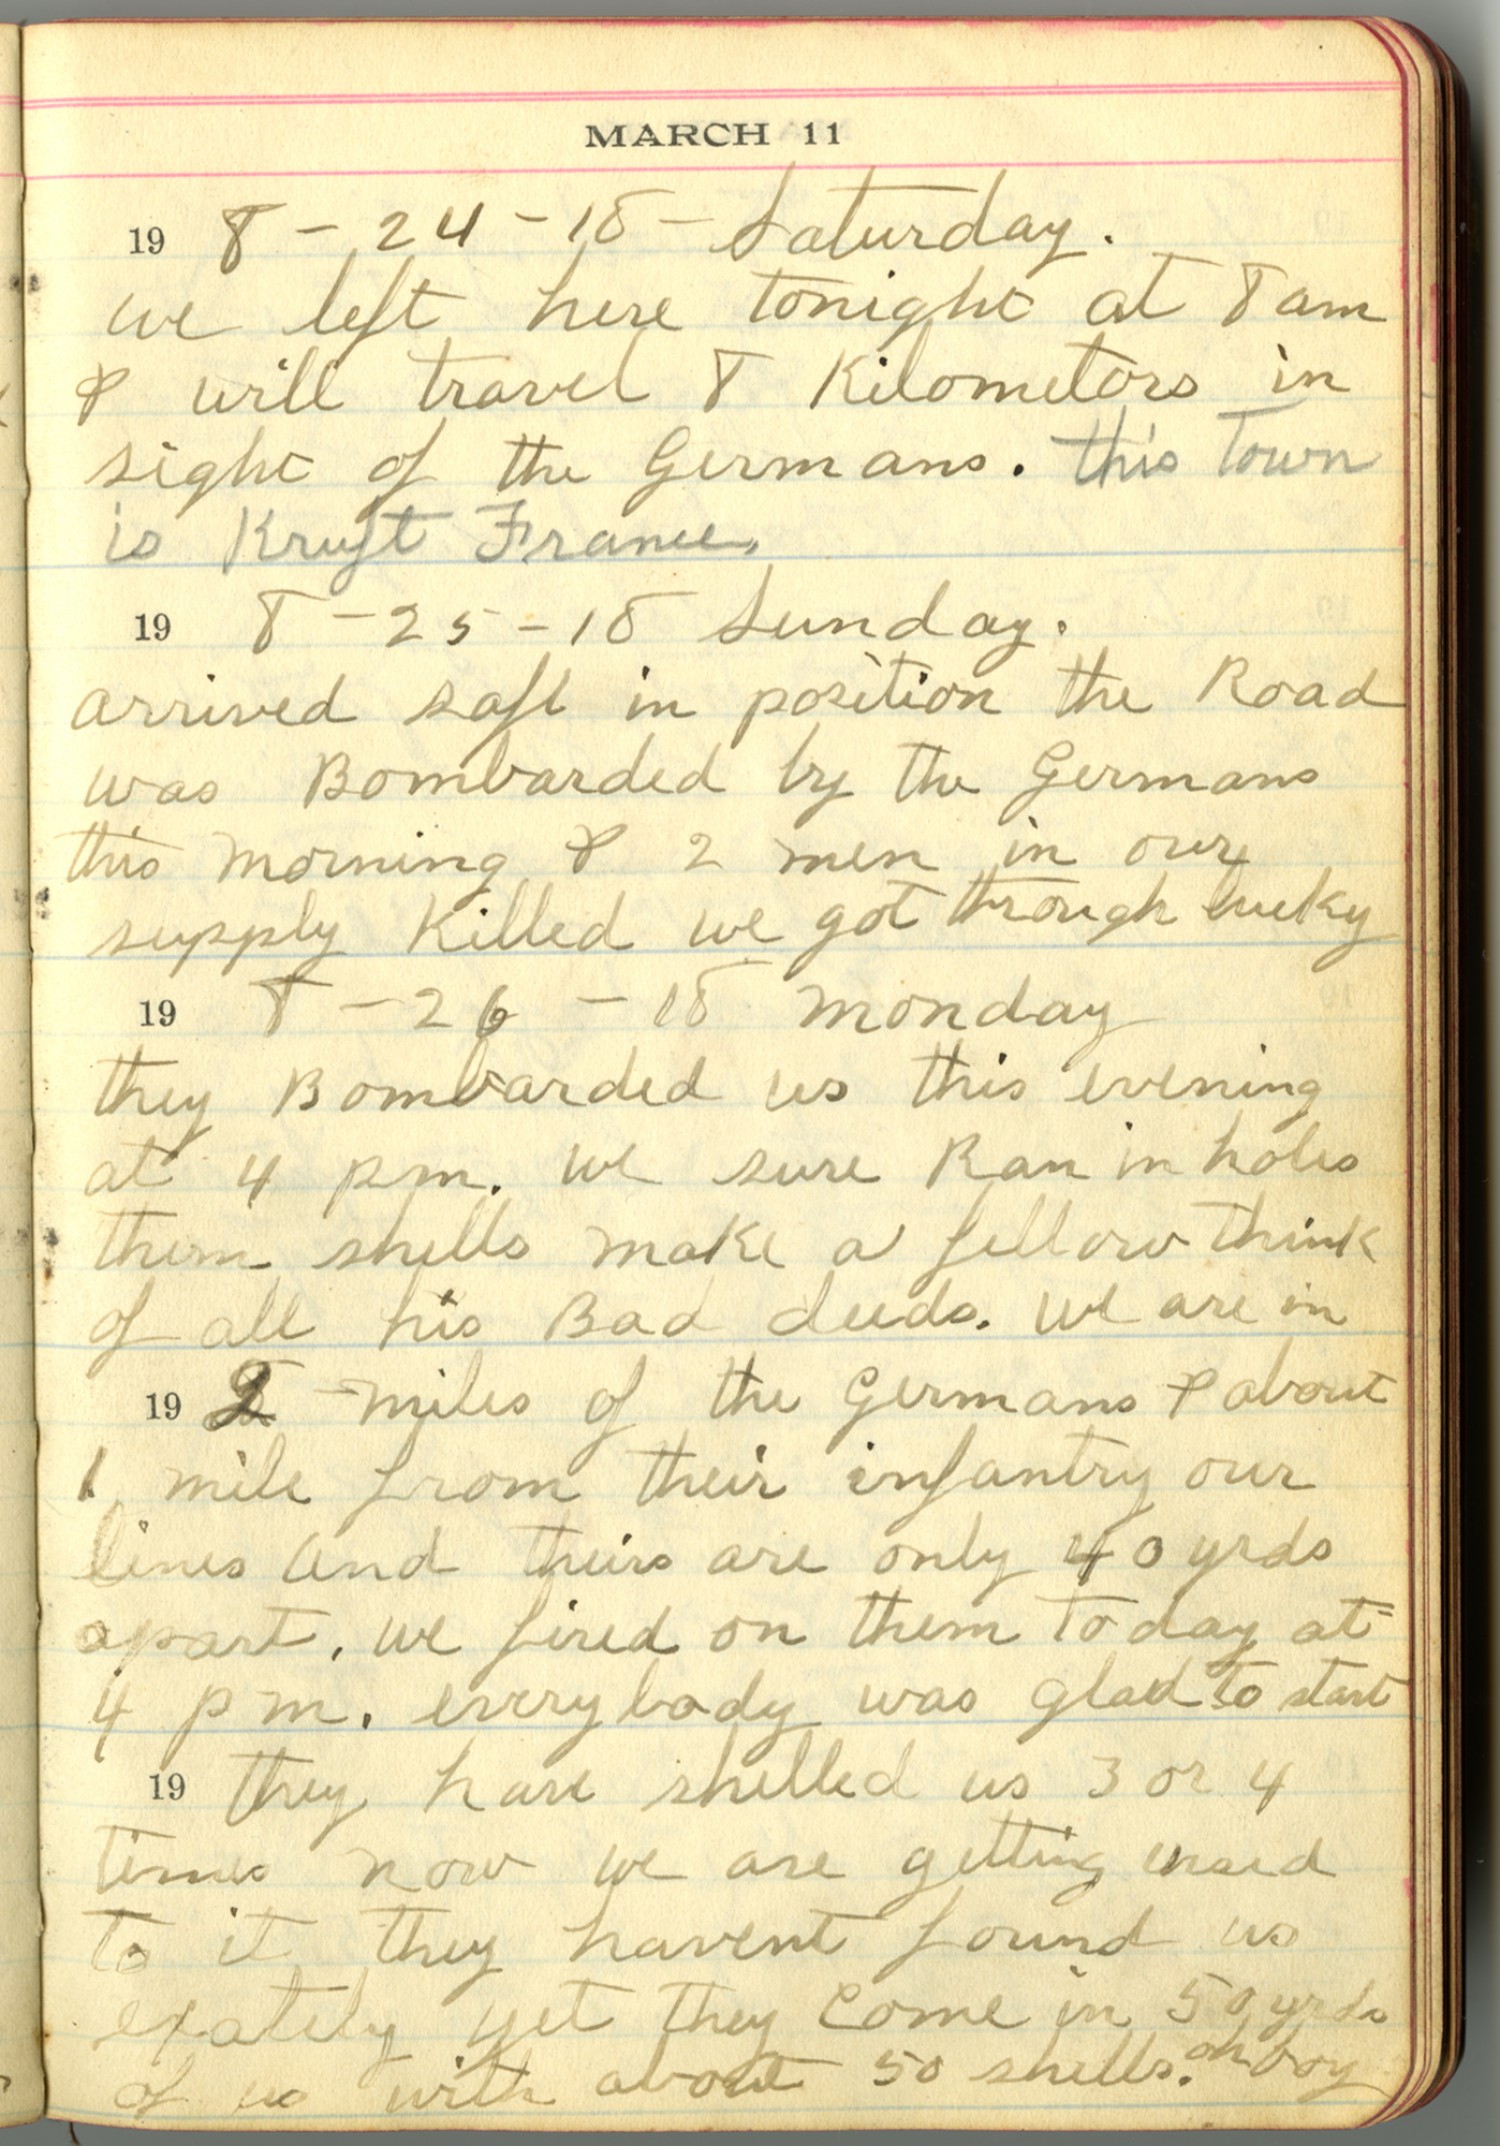 MARCH 11
19 8 - 24 - 18 - Saturday.
we left here tonight at 8 am
& will travel 8 Kilometors in
sight of the Germans. this Town
is Kruft France.
19 8 - 25 - 18 Sunday.
arrived safe in position the Road
was Bombarded by the Germans
this morning & 2 men in our
supply Killed we got through lucky
19 8 - 26 - 18 monday
they Bombarded us this evening
at 4 pm. we sure Ran in holes
them shells make a fellow think
of all his Bad deeds. we are in
19 2 miles of the Germans & about
1 mile from their infantry our
lines and theirs are only 40 yrds
apart. we fired on them today at
4 pm. everybody was glad to start
19 they have shelled us 3 or 4
times now we are getting used
to it they havent found us
exately yet they come in 50 yrds
of us with about 50 shells. oh boy